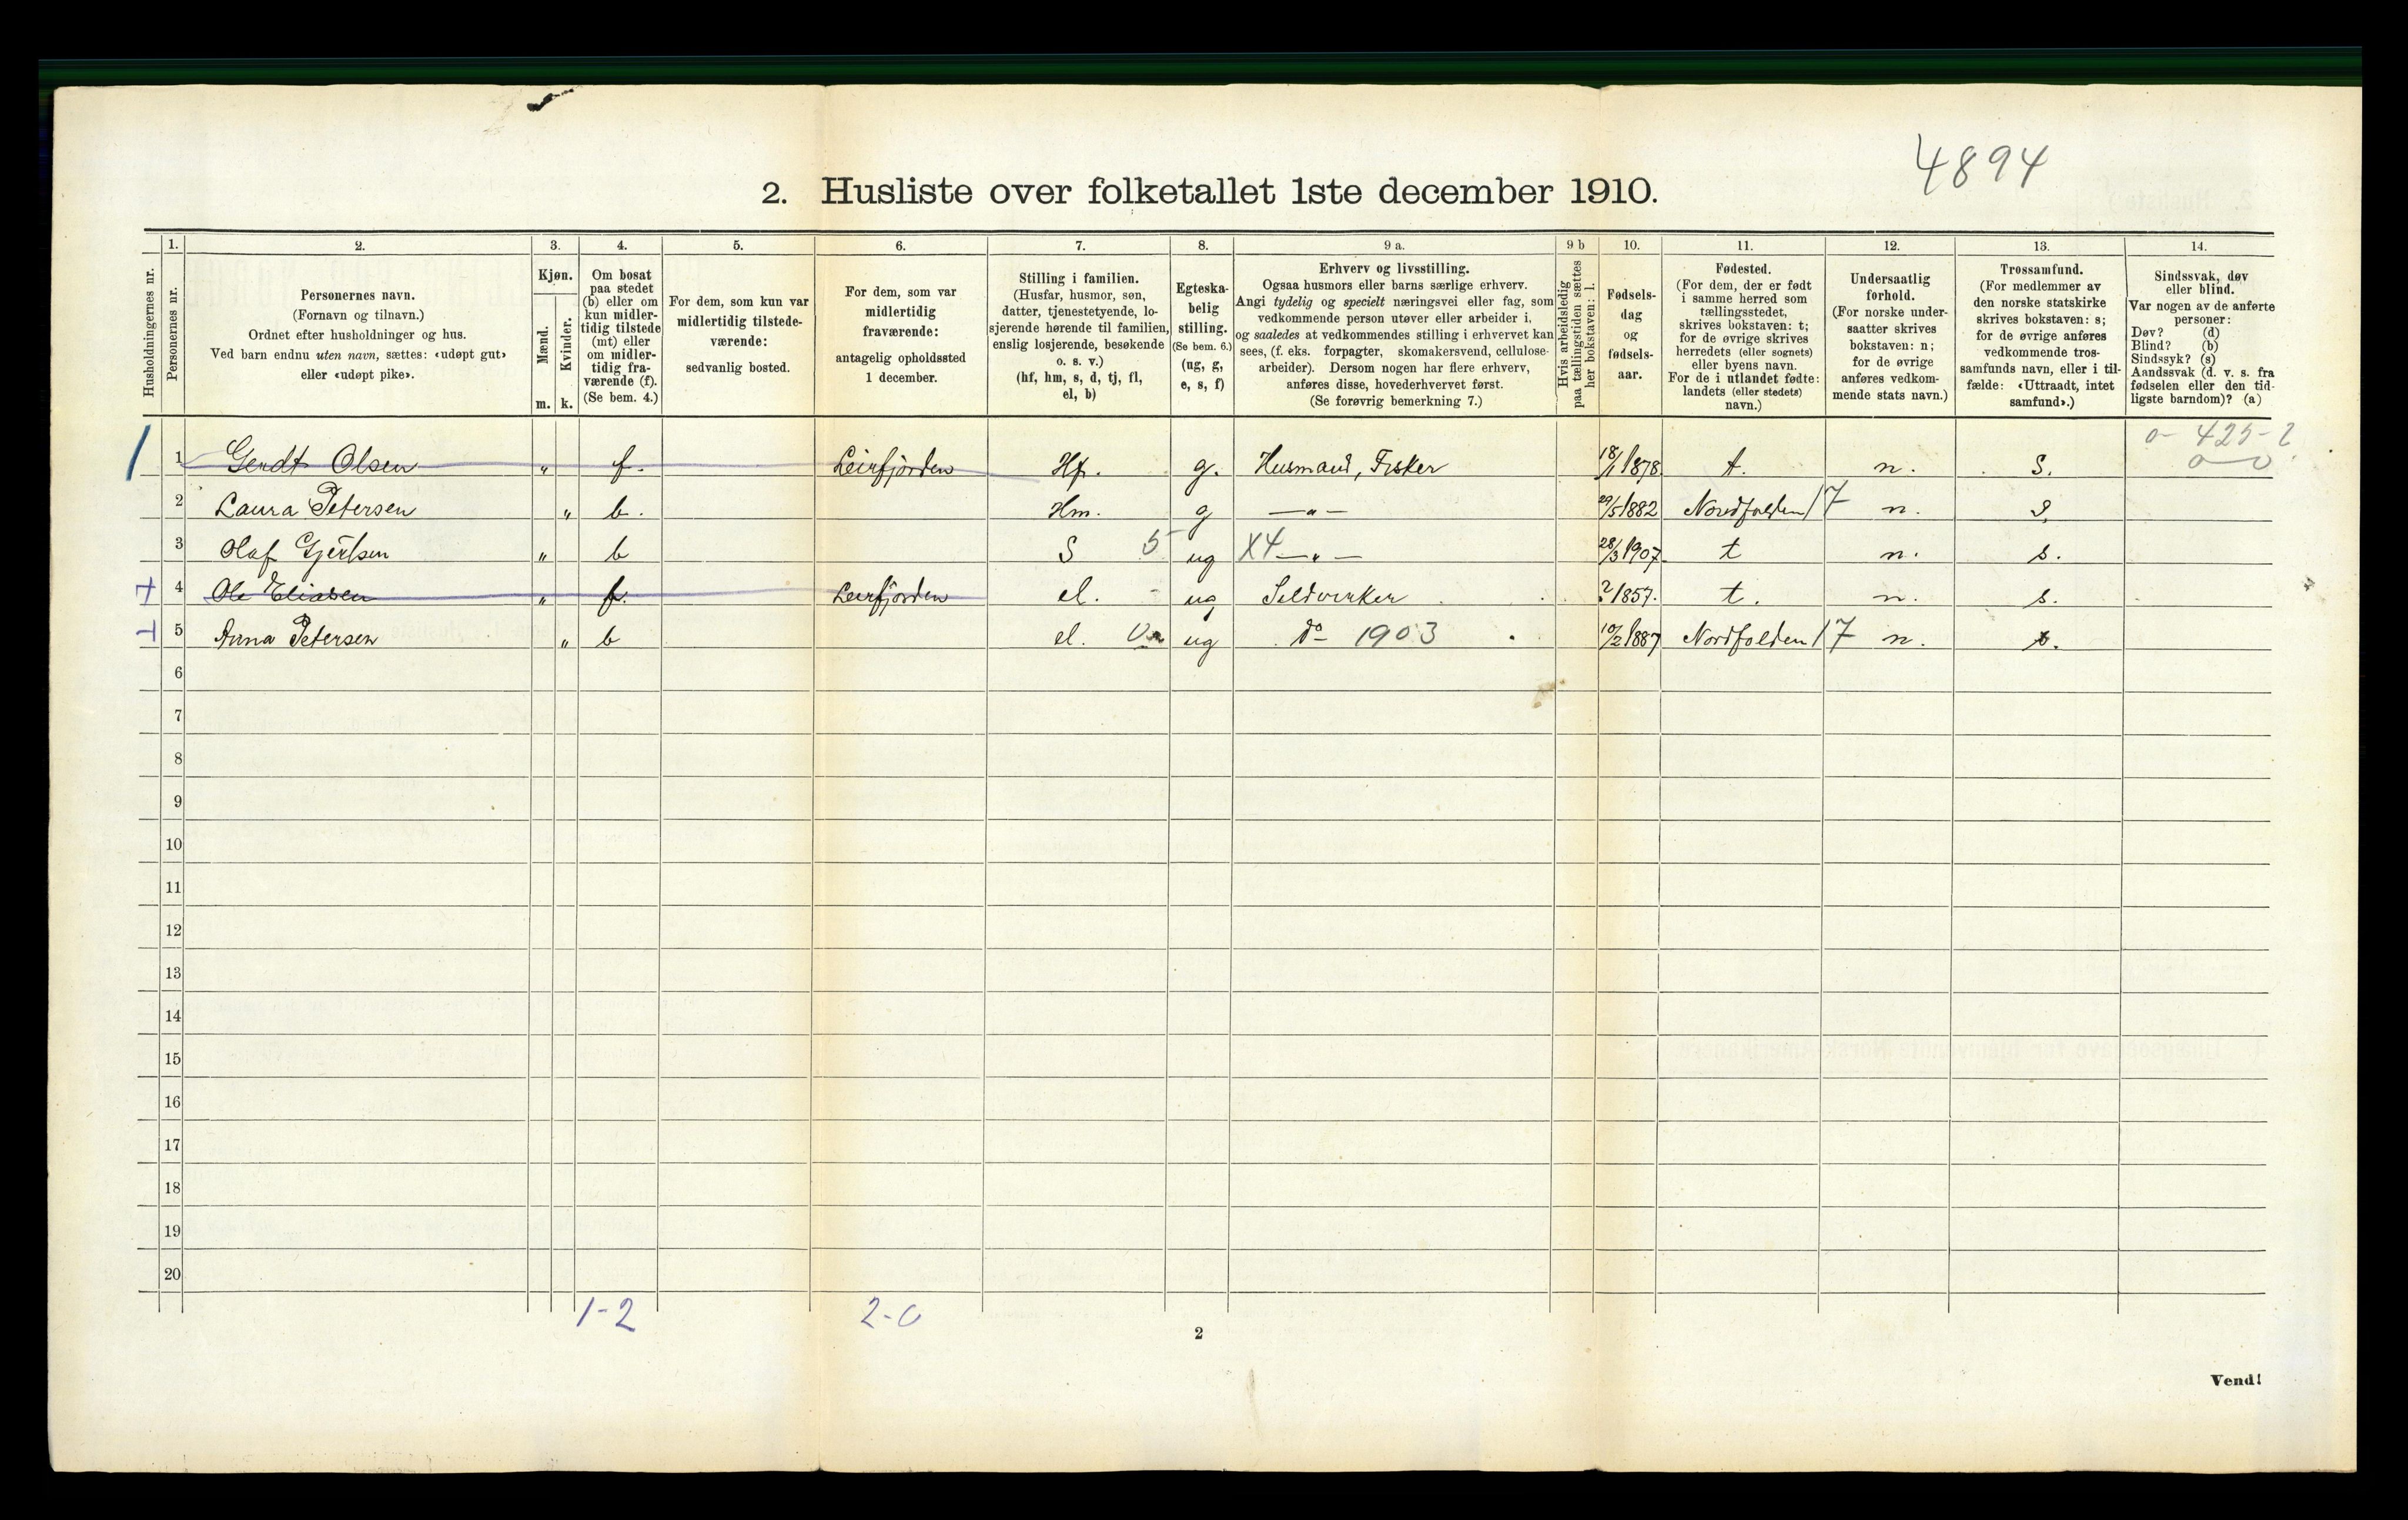 4894
2. Husliste over folketallet 1ste december 1910.
Husholdningernes nr.
1. Personernes nr.
2. Personernes navn. (Fornavn og tilnavn.) Ordnet efter husholdninger og hus. Ved barn endnu uten navn, sættes: «udøpt gut» eller «udøpt pike».
3. Kjøn. Mænd. m. Kvinder. k.
4. Om bosat paa stedet (b) eller om kun midlertidig tilstede (mt) eller om midlertidig fraværende (f). (Se bem. 4.)
5. For dem, som kun var midlertidig tilstedeværende: sedvanlig bosted.
6. For dem, som var midlertidig fraværende: antagelig opholdssted 1 december.
7. Stilling i familien. (Husfar, husmor, søn, datter, tjenestetyende, losjerende hørende til familien, enslig losjerende, besøkende o. s. v.) (hf, hm, s, d, tj, fl, el, b)
8. Egteskabelig stilling. (Se bem. 6.) (ug, g, e, s, f)
9 a. Erhverv og livsstilling. Ogsaa husmors eller barns særlige erhverv. Angi tydelig og specielt næringsvei eller fag, som vedkommende person utøver eller arbeider i, og saaledes at vedkommendes stilling i erhvervet kan sees, (f. eks. forpagter, skomakersvend, cellulosearbeider). Dersom nogen har flere erhverv, anføres disse, hovederhvervet først. (Se forøvrig bemerkning 7.)
9 b Hvis arbeidsledig paa tællingstiden sættes her bokstaven: l.
10. Fødselsdag og fødselsaar.
11. Fødested. (For dem, der er født i samme herred som tællingsstedet, skrives bokstaven: t; for de øvrige skrives herredets (eller sognets) eller byens navn. For de i utlandet fødte: landets (eller stedets) navn.)
12. Undersaatlig forhold. (For norske undersaatter skrives bokstaven: n; for de øvrige anføres vedkommende stats navn.)
13. Trossamfund. (For medlemmer av den norske statskirke skrives bokstaven: s; for de øvrige anføres vedkommende trossamfunds navn, eller i tilfælde: «Uttraadt, intet samfund».)
14. Sindssvak, døv eller blind. Var nogen av de anførte personer: Døv? (d) Blind? (b) Sindssyk? (s) Aandssvak (d. v. s. fra fødselen eller den tidligste barndom)? (a)
1 1 Gerdt Olsen " f. Leirfjorden Hf. g. Husmand, Fisker 18/1 1878. t. n. S.
2 Laura Petersen " b. Hm. g —"— 29/5 1882 Nordfolden 17 n. S.
3 Olaf Gjertsen " b S 5 ug X4 —"— 28/3 1907. t n. s.
4 Ole Eliasen " f. Leirfjorden el. - ug Sildvirker ? 1857. t. n. s.
5 Anna Petersen " b el. ug do 1903 10/2 1887 Nordfolden 17 n. s.
6
7
8
9
10
11
12
13
14
15
16
17
18
19
20
1-2 2-0
2
Vend!